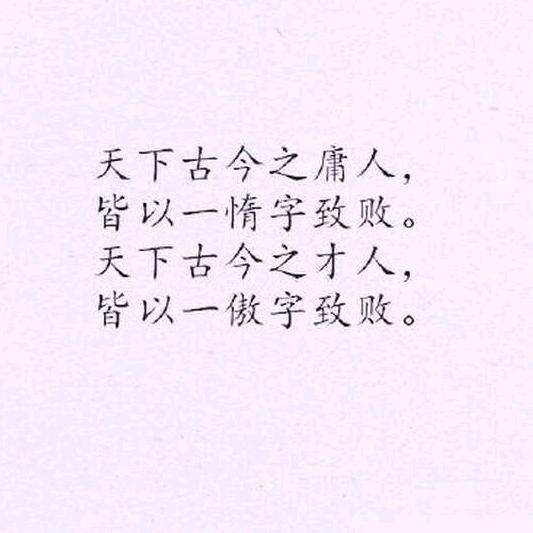 天下古今之庸人，
皆以一惰字致败。
天下古今之才人，
皆以一傲字致败。